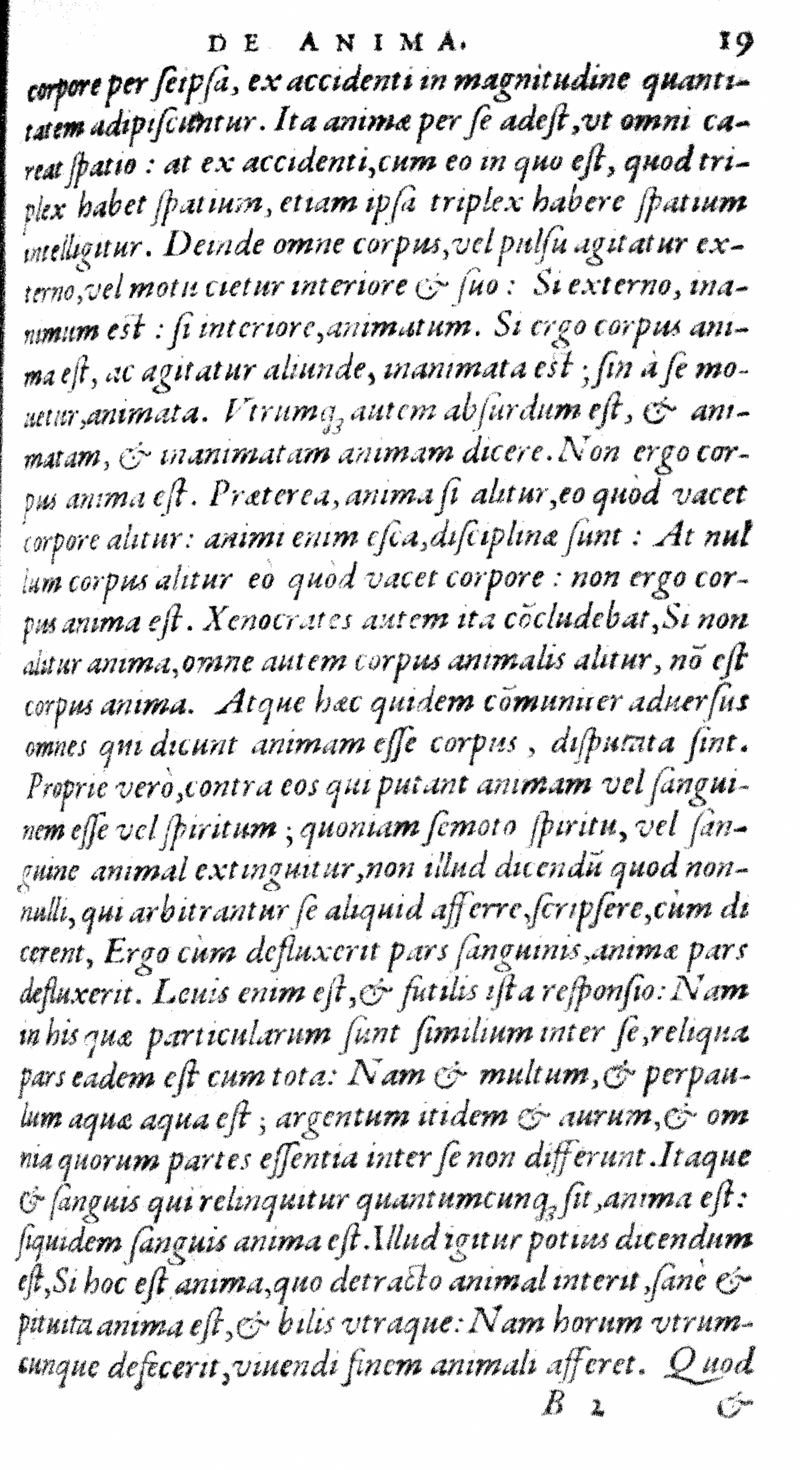 DE ANIMA. 19
corpore per seipsa, ex accidenti in magnitudine quanti-
tatem adipiscuntur. Ita animæ per se adest, vt omni ca-
reat spatio : at ex accidenti, cum eo in quo est, quod tri-
plex habet spatium, etiam ipsa triplex habere spatium
intelligitur. Deinde omne corpus, vel pulsu agitatur ex-
terno, vel motu cietur interiore & suo : Si externo, ina-
nimum est : si interiore, animatum. Si ergo corpus ani-
ma est, ac agitatur aliunde, inanimata est ; sin à se mo-
uetur, animata. Vtrumq; autem absurdum est, & ani-
matam, & inanimatam animam dicere. Non ergo cor-
pus anima est. Præterea, anima si alitur, eo quòd vacet
corpore alitur : animi enim esca, disciplinæ sunt : At nul
lum corpus alitur eò quòd vacet corpore : non ergo cor-
pus anima est. Xenocrates autem ita cõcludebat, Si non
alitur anima, omne autem corpus animalis alitur, nõ est
corpus anima. Atque hæc quidem cõmuniter aduersus
omnes qui dicunt animam esse corpus , disputata sint.
Propriè verò, contra eos qui putant animam vel sangui-
nem esse vel spiritum ; quoniam semoto spiritu, vel san-
guine animal extinguitur, non illud dicendũ quod non-
nulli, qui arbitrantur se aliquid afferre, scripsere, cùm di
cerent, Ergo cùm defluxerit pars sanguinis, animæ pars
defluxerit. Leuis enim est, & futilis ista responsio : Nam
in his quæ particularum sunt similium inter se, reliqua
pars eadem est cum tota : Nam & multum, & perpau-
lum aquæ aqua est ; argentum itidem & aurum, & om
nia quorum partes essentia inter se non differunt. Itaque
& sanguis qui relinquitur quantumcunq; sit, anima est :
siquidem sanguis anima est. Illud igitur potius dicendum
est, Si hoc est anima, quo detracto animal interit, sanè &
pituita anima est, & bilis vtraque : Nam horum vtrum-
cunque defecerit, viuendi finem animali afferet. Quod
B 2 &